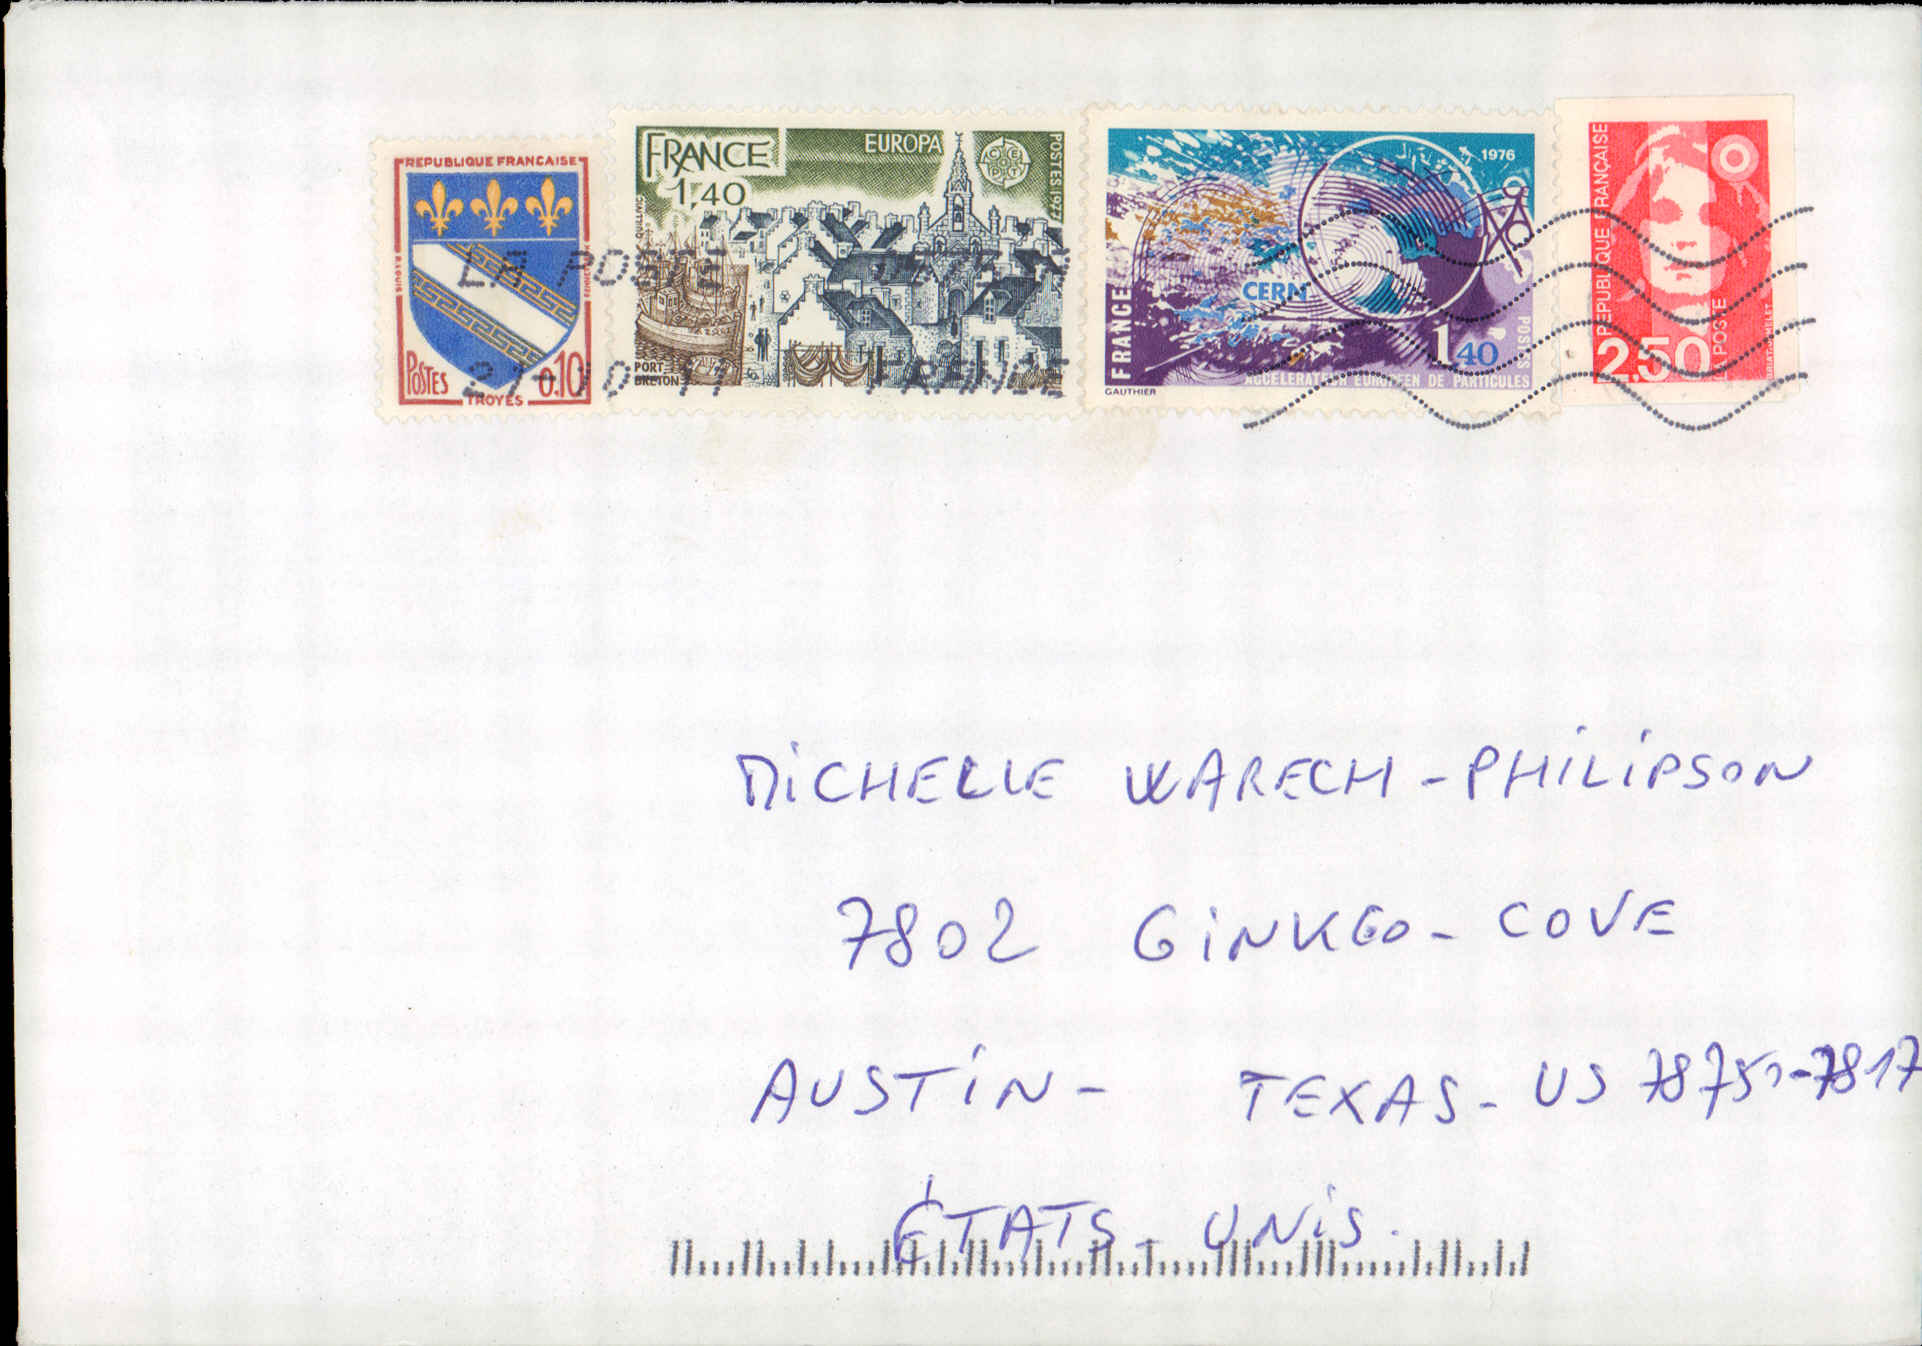 REPUBLIQUE FRANCAISE
POSTES 0.10
TROYES
FRANCE
1,40
EUROPA
CEPT
POSTES 1977
PORT
BRETON
1976
CERN
FRANCE
1,40
POSTES
ACCELERATEUR EUROPEEN DE PARTICULES
GAUTHIER
REPUBLIQUE FRANÇAISE
2.50
LA POSTE
LA POSTE
FRANCE
MICHELLE WARECH-PHILIPSON
7802 GINKGO-COVE
AUSTIN- TEXAS-US 78750-7817
ÉTATS-UNIS.